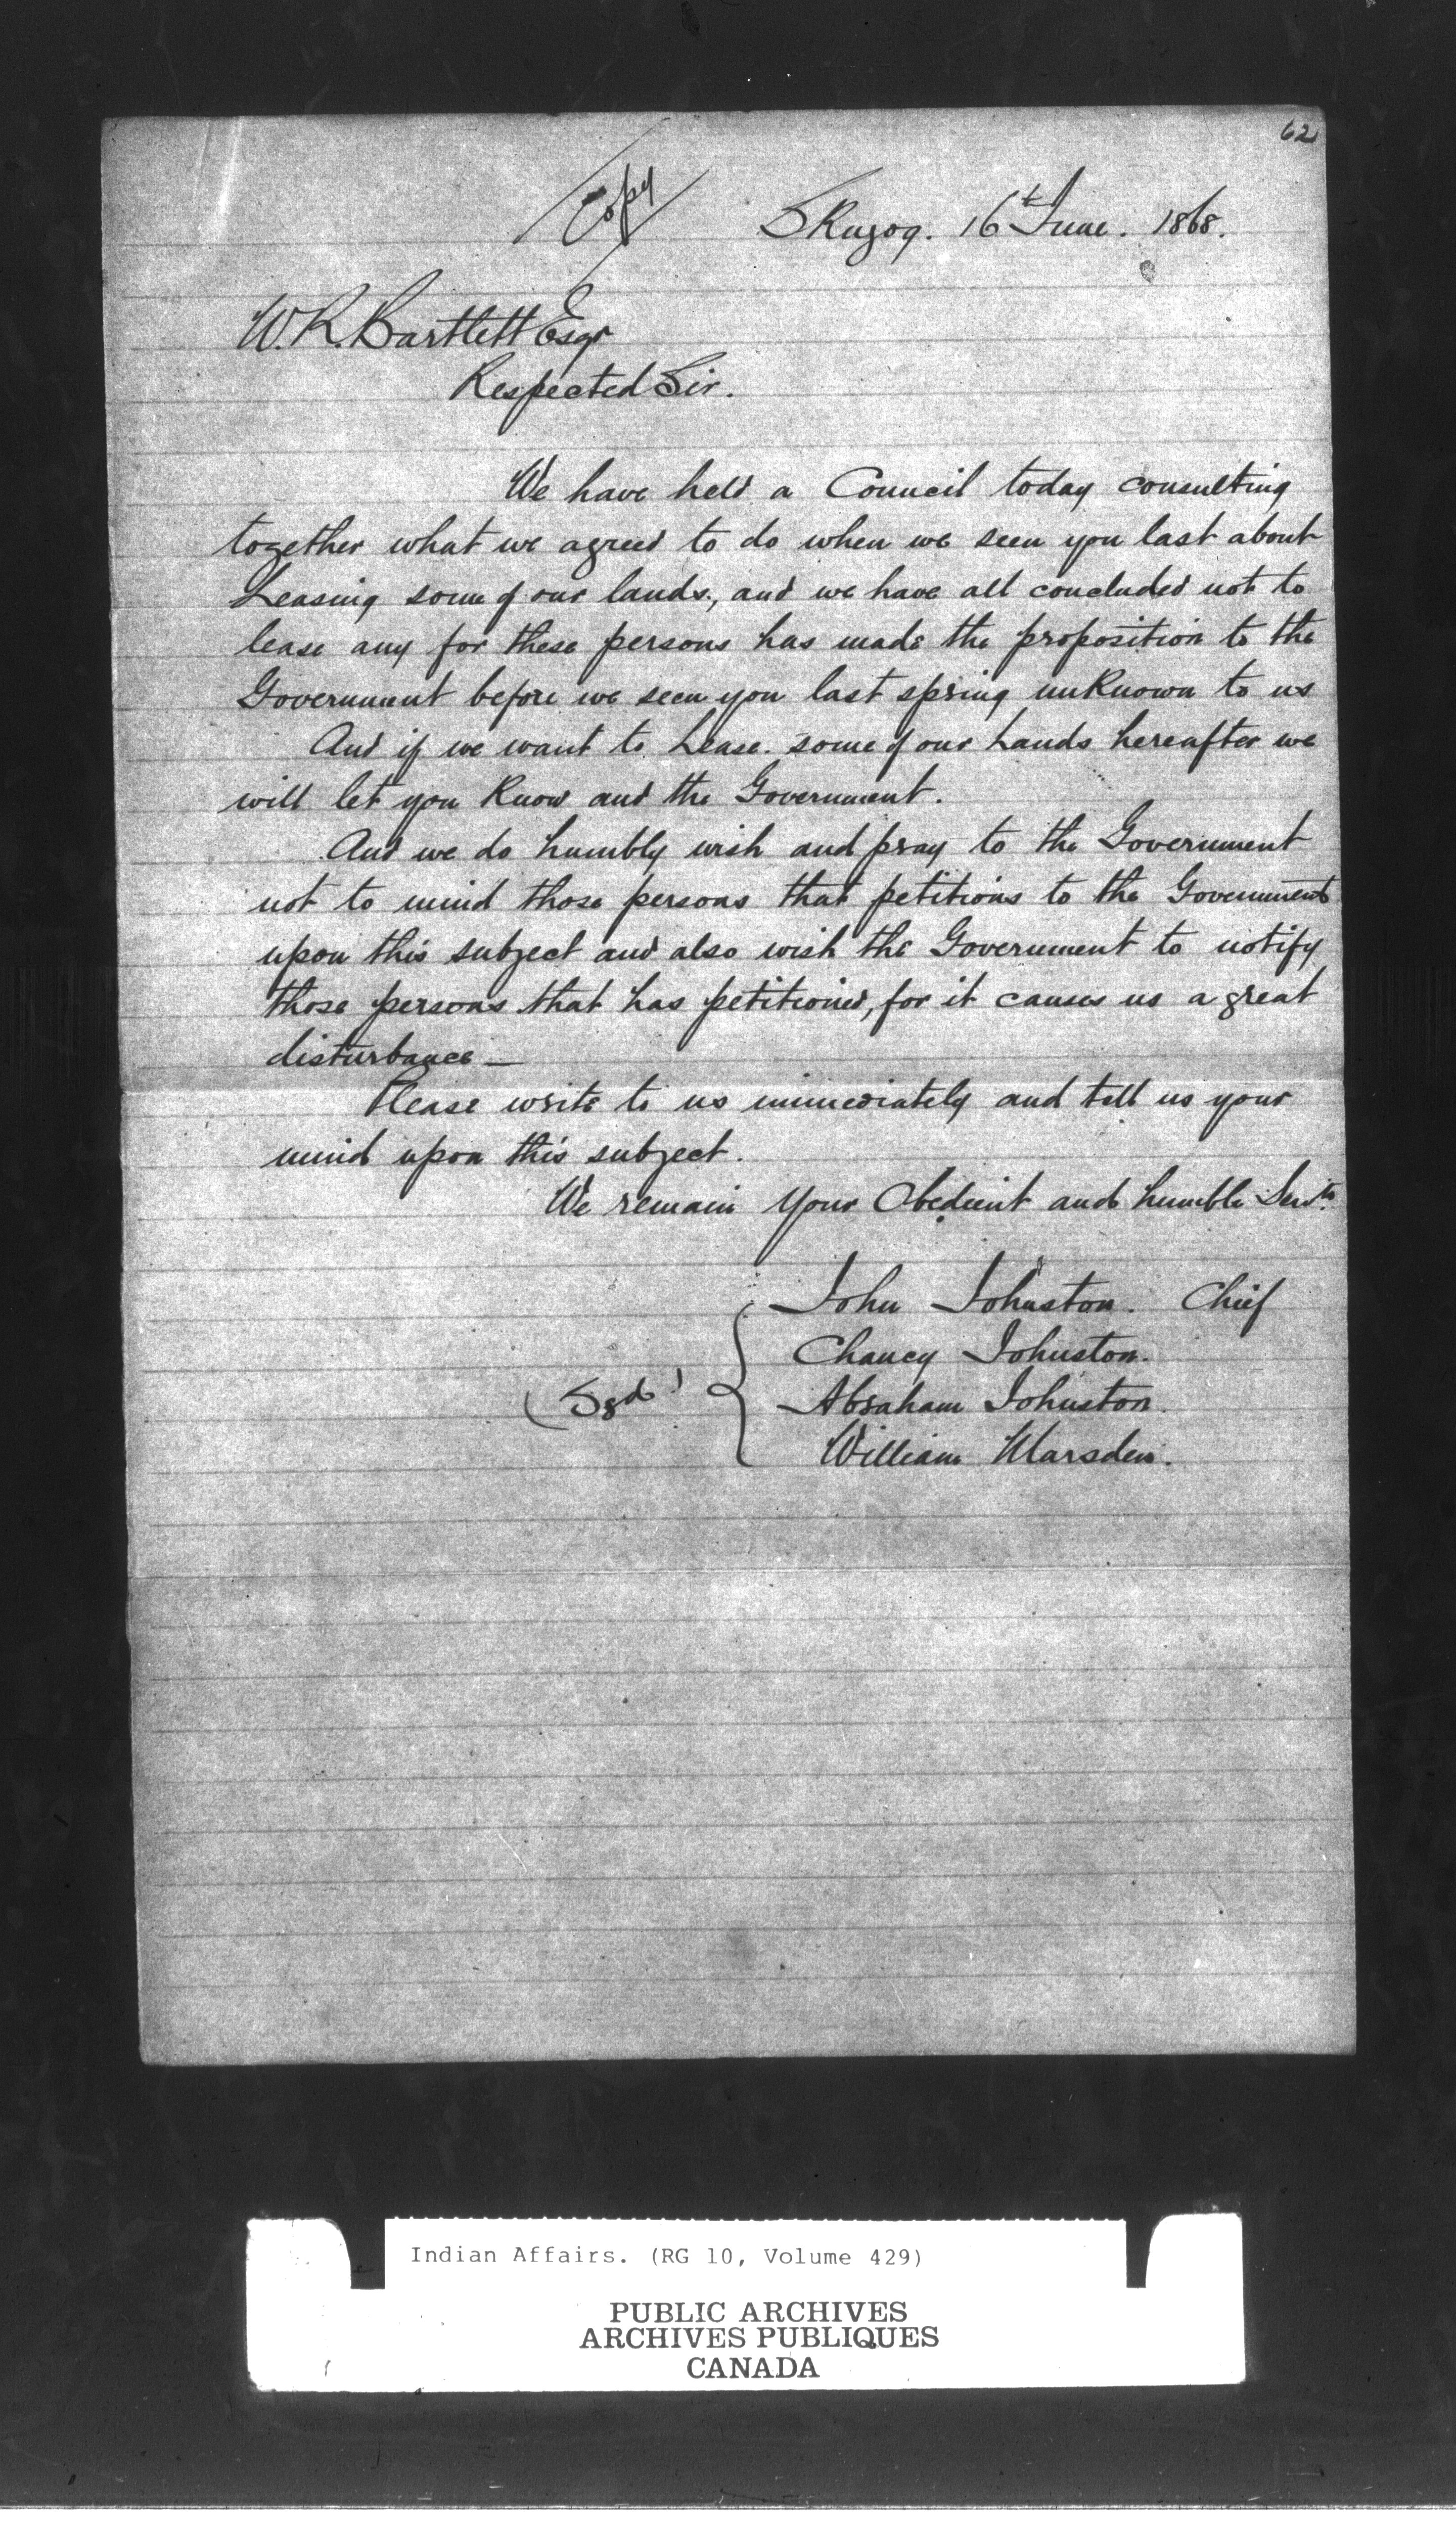 62
Copy
Skugog. 16th June. 1868.
W. R. Bartlett Esqr
Respected Sir.
We have held a Council today consulting
together what we agreed to do when we seen you last about
Leasing some of our lands, and we have all concluded not to
lease any for these persons has made the proposition to the
Government before we seen you last spring unknown to us
And if we want to Lease. some of our Lands hereafter we
will let you know and the Government.
And we do humbly wish and pray to the Government
not to mind those persons that petitions to the Government
upon this subject and also wish the Government to notify
those persons that has petitioned, for it causes us a great
disturbance —
Please write to us immediately and tell us your
mind upon this subject.
We remain Your Obedient and humble Servts.
John Johnston. Chief
Chancy Johnston.
(Sgd)
Abraham Johnston.
William Marsden.
Indian Affairs. (RG 10, Volume 429)
PUBLIC ARCHIVES
ARCHIVES PUBLIQUES
CANADA